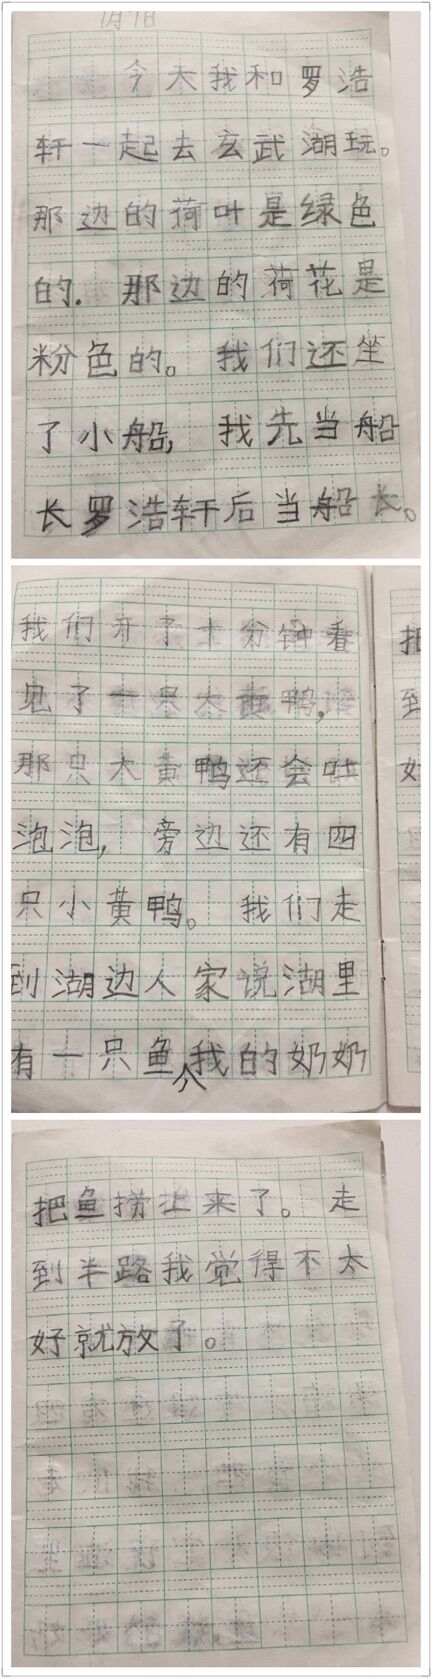 今天我和罗浩
轩一起去玄武湖玩。
那边的荷叶是绿色
的. 那边的荷花是
粉色的。我们还坐
了小船, 我先当船
长罗浩轩后当船长。
我们开了十分钟看
见了一只大黄鸭,
那只大黄鸭还会吐
泡泡, 旁边还有四
只小黄鸭。我们走
到湖边人家说湖里
有一只鱼我的奶奶
把鱼捞上来了。走
到半路我觉得不太
好就放了。